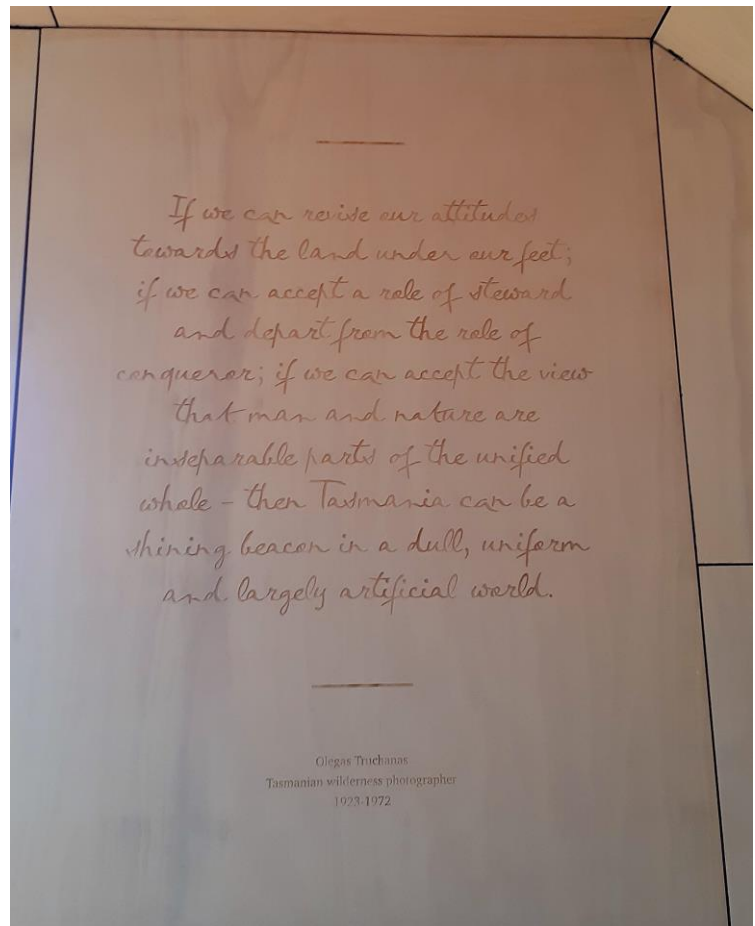 If we can revise our attitudes
towards the land under our feet;
if we can accept a role of steward
and depart from the role of
conqueror; if we can accept the view
that man and nature are
inseparable parts of the unified
whole - then Tasmania can be a
shining beacon in a dull, uniform
and largely artificial world.
Olegas Truchanas
Tasmanian wilderness photographer
1923-1972